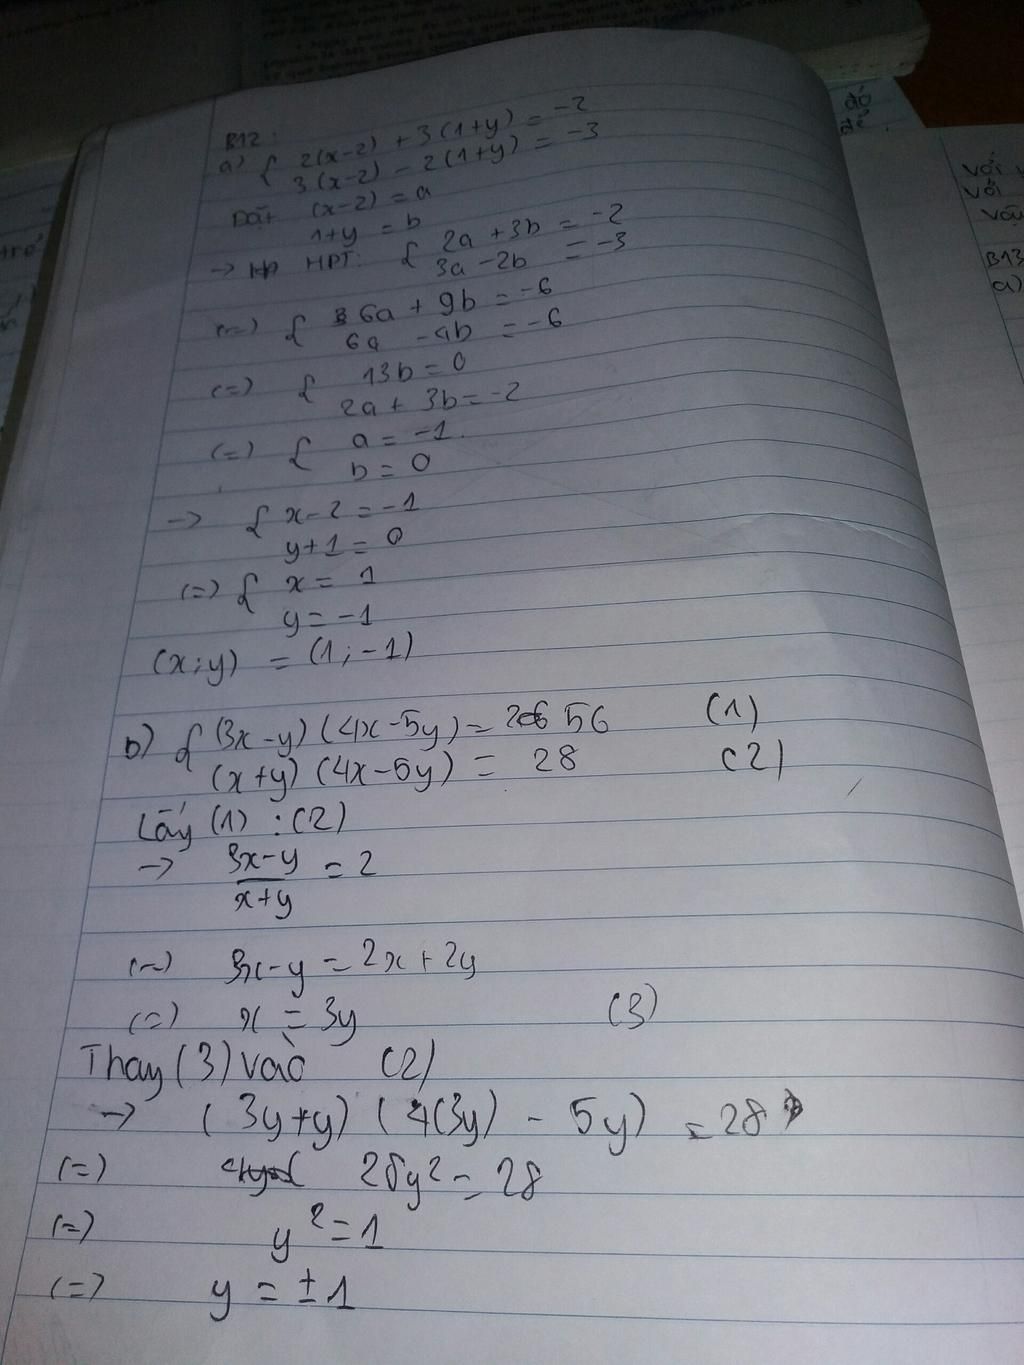 B12:
a) { 2(x-2) + 3(1+y) = -2
3(x-2) - 2(1+y) = -3
Đặt (x-2) = a
1+y = b
-> HPT: { 2a + 3b = -2
3a - 2b = -3
(=) { 6a + 9b = -6
6a - 4b = -6
(=) { 13b = 0
2a + 3b = -2
(=) { a = -1
b = 0
-> { x-2 = -1
y+1 = 0
(=) { x = 1
y = -1
(x;y) = (1;-1)
b) { (3x-y)(4x-5y) = 56 (1)
(x+y)(4x-5y) = 28 (2)
Lấy (1) : (2)
-> 3x-y / x+y = 2
(=) 3x-y = 2x+2y
(=) x = 3y (3)
Thay (3) vào (2)
-> (3y+y)(4(3y) - 5y) = 28
(=) 28y² = 28
(=) y² = 1
(=) y = ±1
đó
để
Với
Với
Vậy
B13
a)